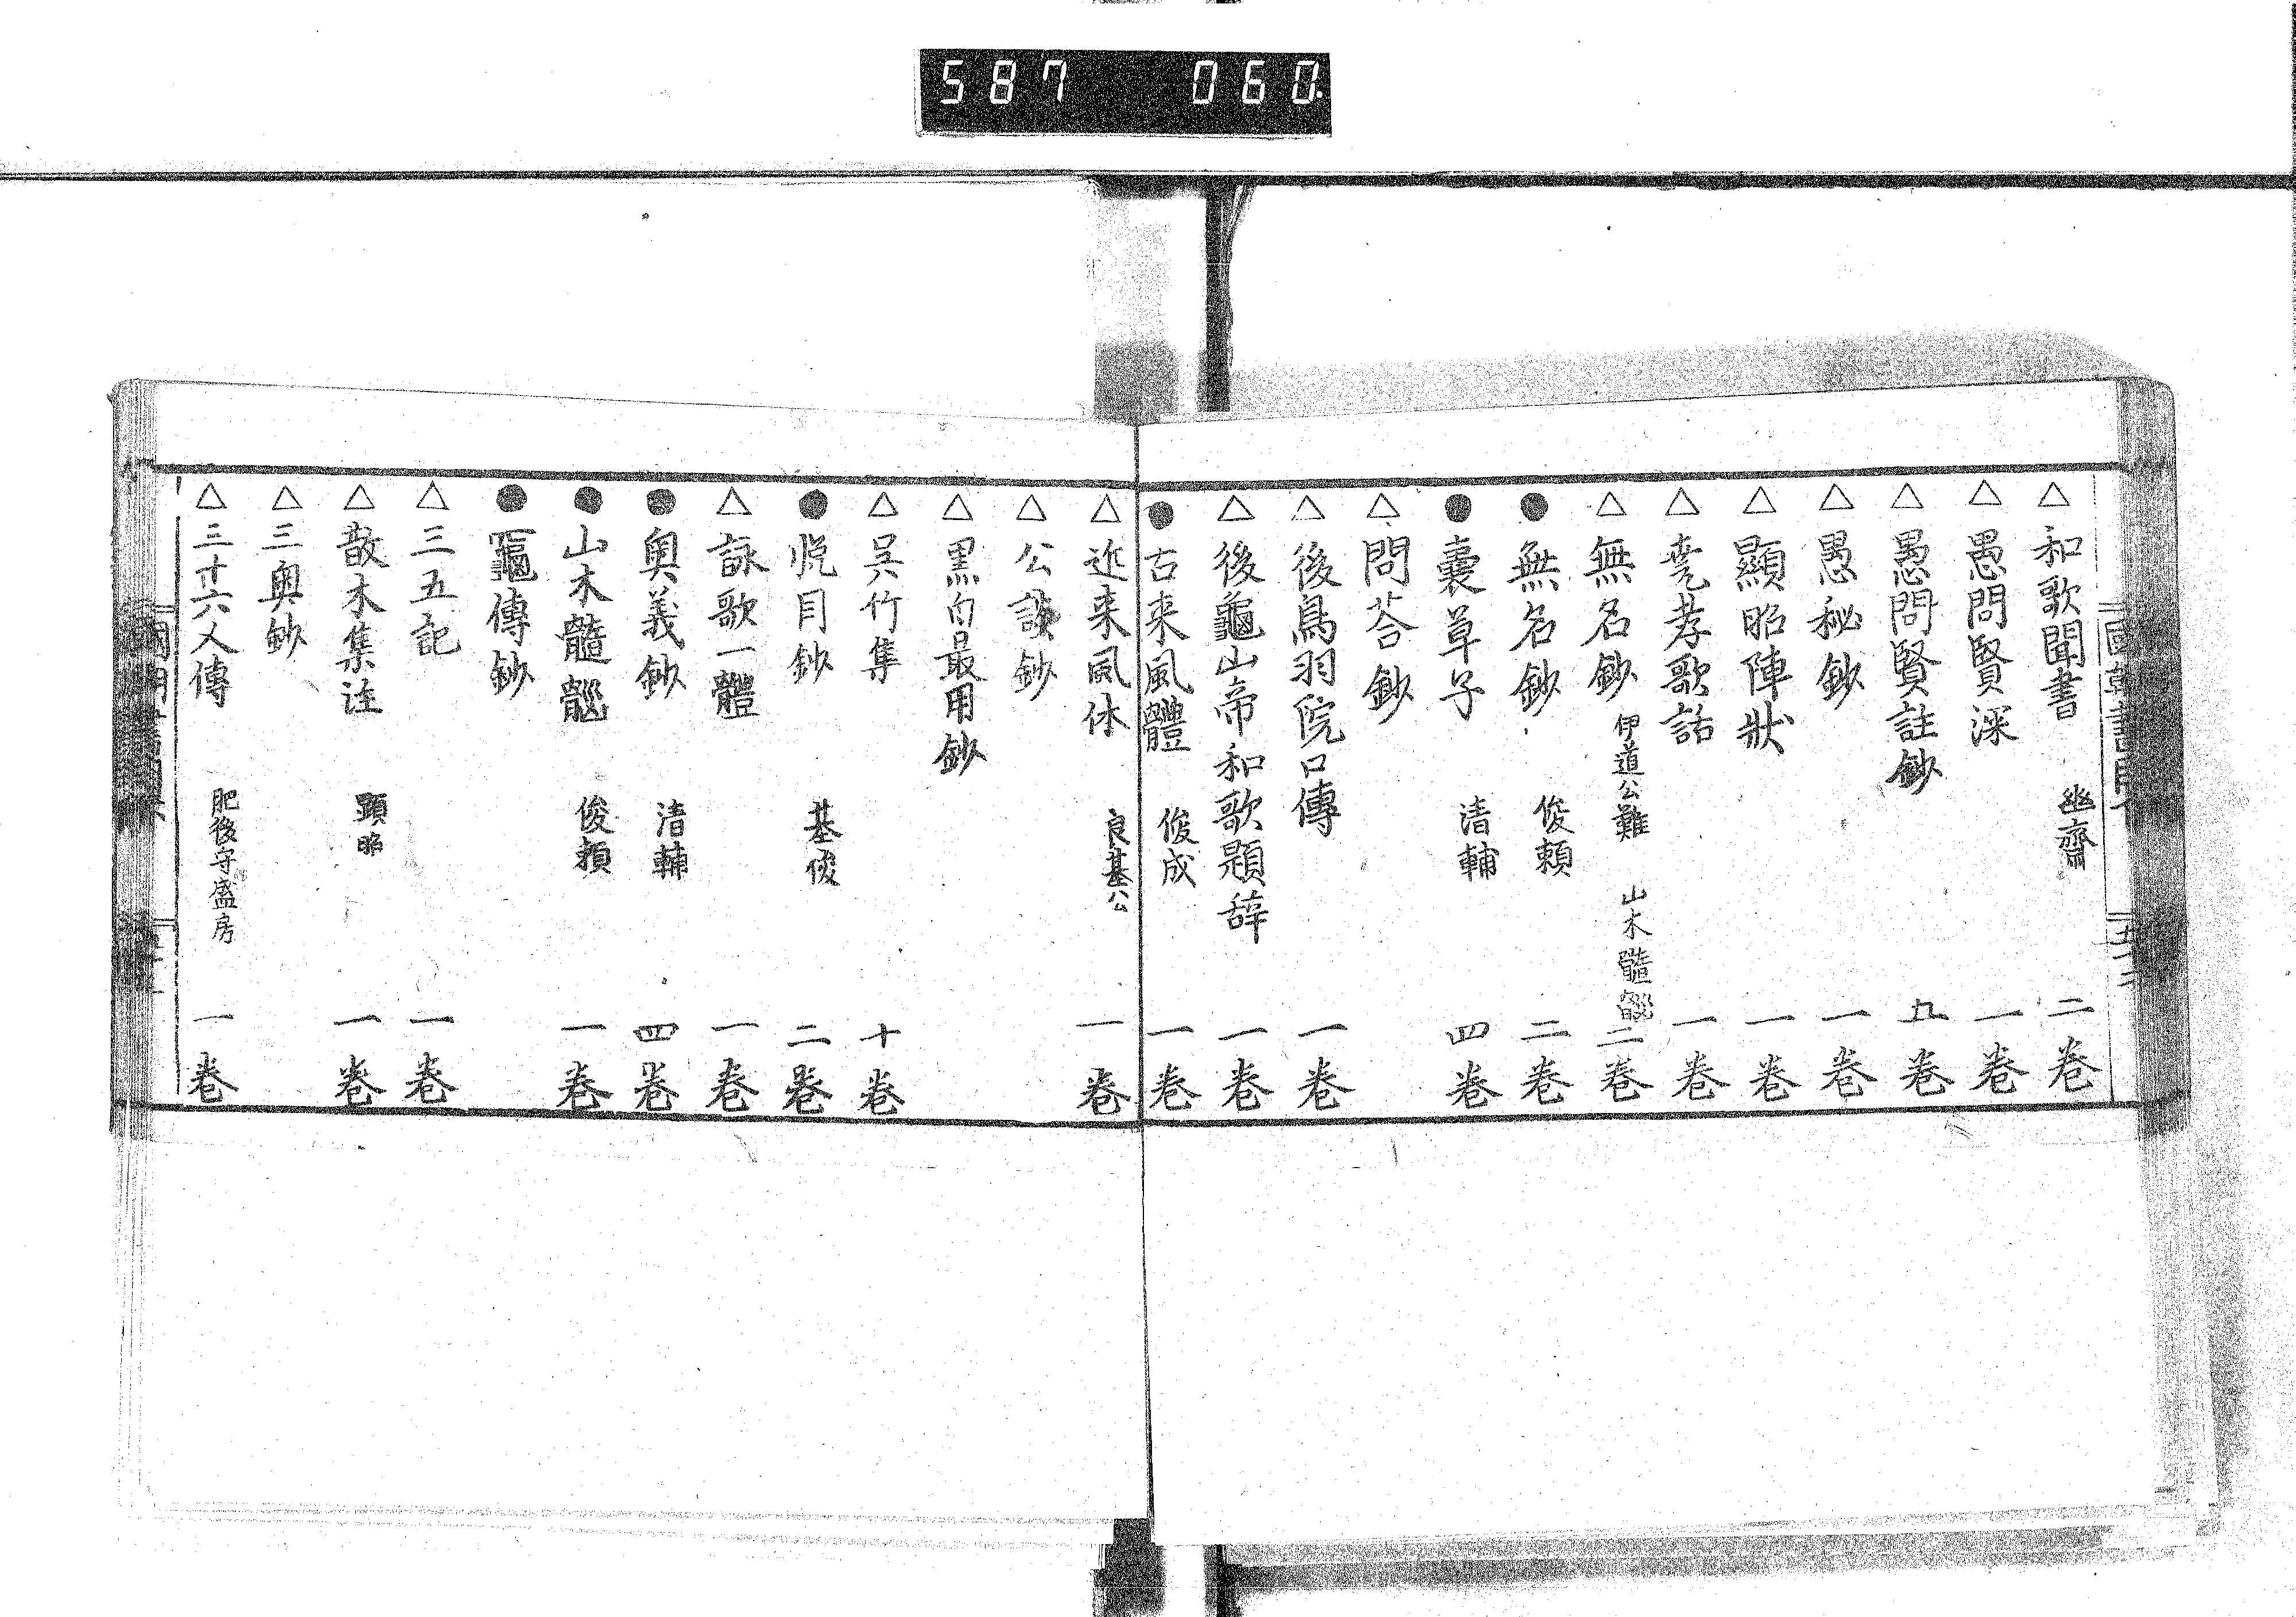 587 060.
△和歌聞書 幽齋 二卷
△愚問賢深 一卷
△愚問賢註鈔 五卷
△愚秘鈔 一卷
△顯昭陣狀 一卷
△尭孝歌話 一卷
△無名鈔 伊道公難 山木髓𦜝 二卷
●無名鈔 俊頼 二卷
●囊草子 清輔 四卷
△問荅鈔
△後鳥羽院口傳 一卷
△後龜山帝和歌題辞 一卷
●古来風體 俊成 一卷
△近来風体 良基公 一卷
△公談鈔
△黒白最用鈔
△呉竹集 十卷
●悦目鈔 基俊 二卷
△詠歌一體 一卷
●奥義鈔 清輔 四卷
●山木髓𦜝 俊頼 一卷
●龜傳鈔
△三五記 一卷
△散木集注 顕昭 一卷
△三奥鈔
△三十六人傳 肥後守盛房 一卷